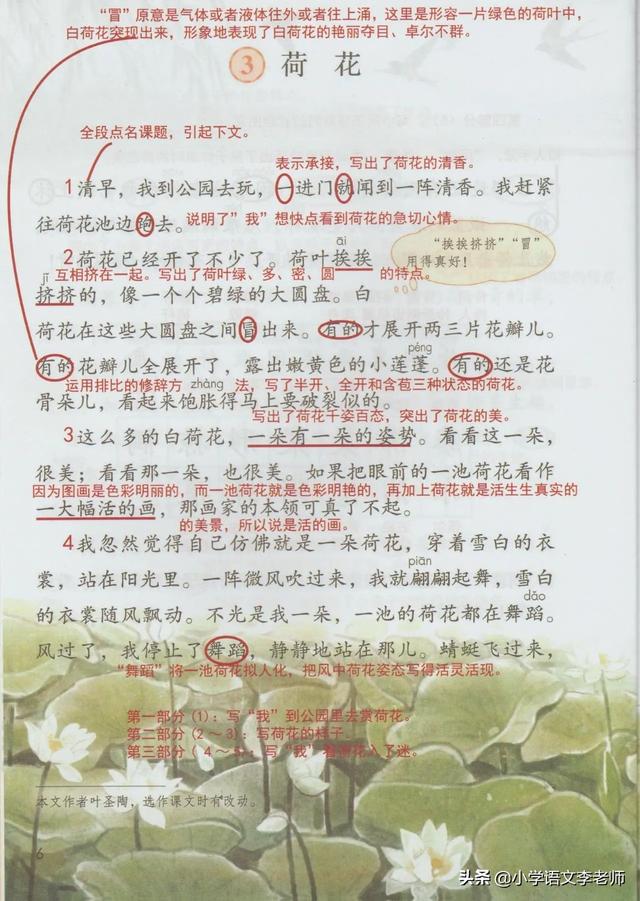 “冒”原意是气体或者液体往外或者往上涌，这里是形容一片绿色的荷叶中，
白荷花突现出来，形象地表现了白荷花的艳丽夺目、卓尔不群。
3 荷花
全段点名课题，引起下文。
表示承接，写出了荷花的清香。
1清早，我到公园去玩，一进门就闻到一阵清香。我赶紧
往荷花池边跑去。说明了”我”想快点看到荷花的急切心情。
āi
2荷花已经开了不少了。荷叶挨挨
“挨挨挤挤”“冒”
用得真好！
jǐ
互相挤在一起。写出了荷叶绿、多、密、圆 的特点。
挤挤的，像一个个碧绿的大圆盘。白
荷花在这些大圆盘之间冒出来。有的才展开两三片花瓣儿。
péng
有的花瓣儿全展开了，露出嫩黄色的小莲蓬。有的还是花
运用排比的修辞方 zhàng 法，写了半开、全开和含苞三种状态的荷花。
骨朵儿，看起来饱胀得马上要破裂似的。
写出了荷花千姿百态，突出了荷花的美。
3这么多的白荷花，一朵有一朵的姿势。看看这一朵，
很美；看看那一朵，也很美。如果把眼前的一池荷花看作
因为图画是色彩明丽的，而一池荷花就是色彩明艳的，再加上荷花就是活生生真实的
一大幅活的画，那画家的本领可真了不起。
的美景，所以说是活的画。
4我忽然觉得自己仿佛就是一朵荷花，穿着雪白的衣
piān
裳，站在阳光里。一阵微风吹过来，我就翩翩起舞，雪白
dǎo
的衣裳随风飘动。不光是我一朵，一池的荷花都在舞蹈。
风过了，我停止了舞蹈，静静地站在那儿。蜻蜓飞过来，
“舞蹈”将一池荷花拟人化，把风中荷花姿态写得活灵活现。
第一部分（1）：写“我”到公园里去赏荷花。
第二部分（2～3）：写荷花的样子。
第三部分（ 4～5）：写“我”看荷花入了迷。
本文作者叶圣陶，选作课文时有改动。
6
头条 @小学语文李老师